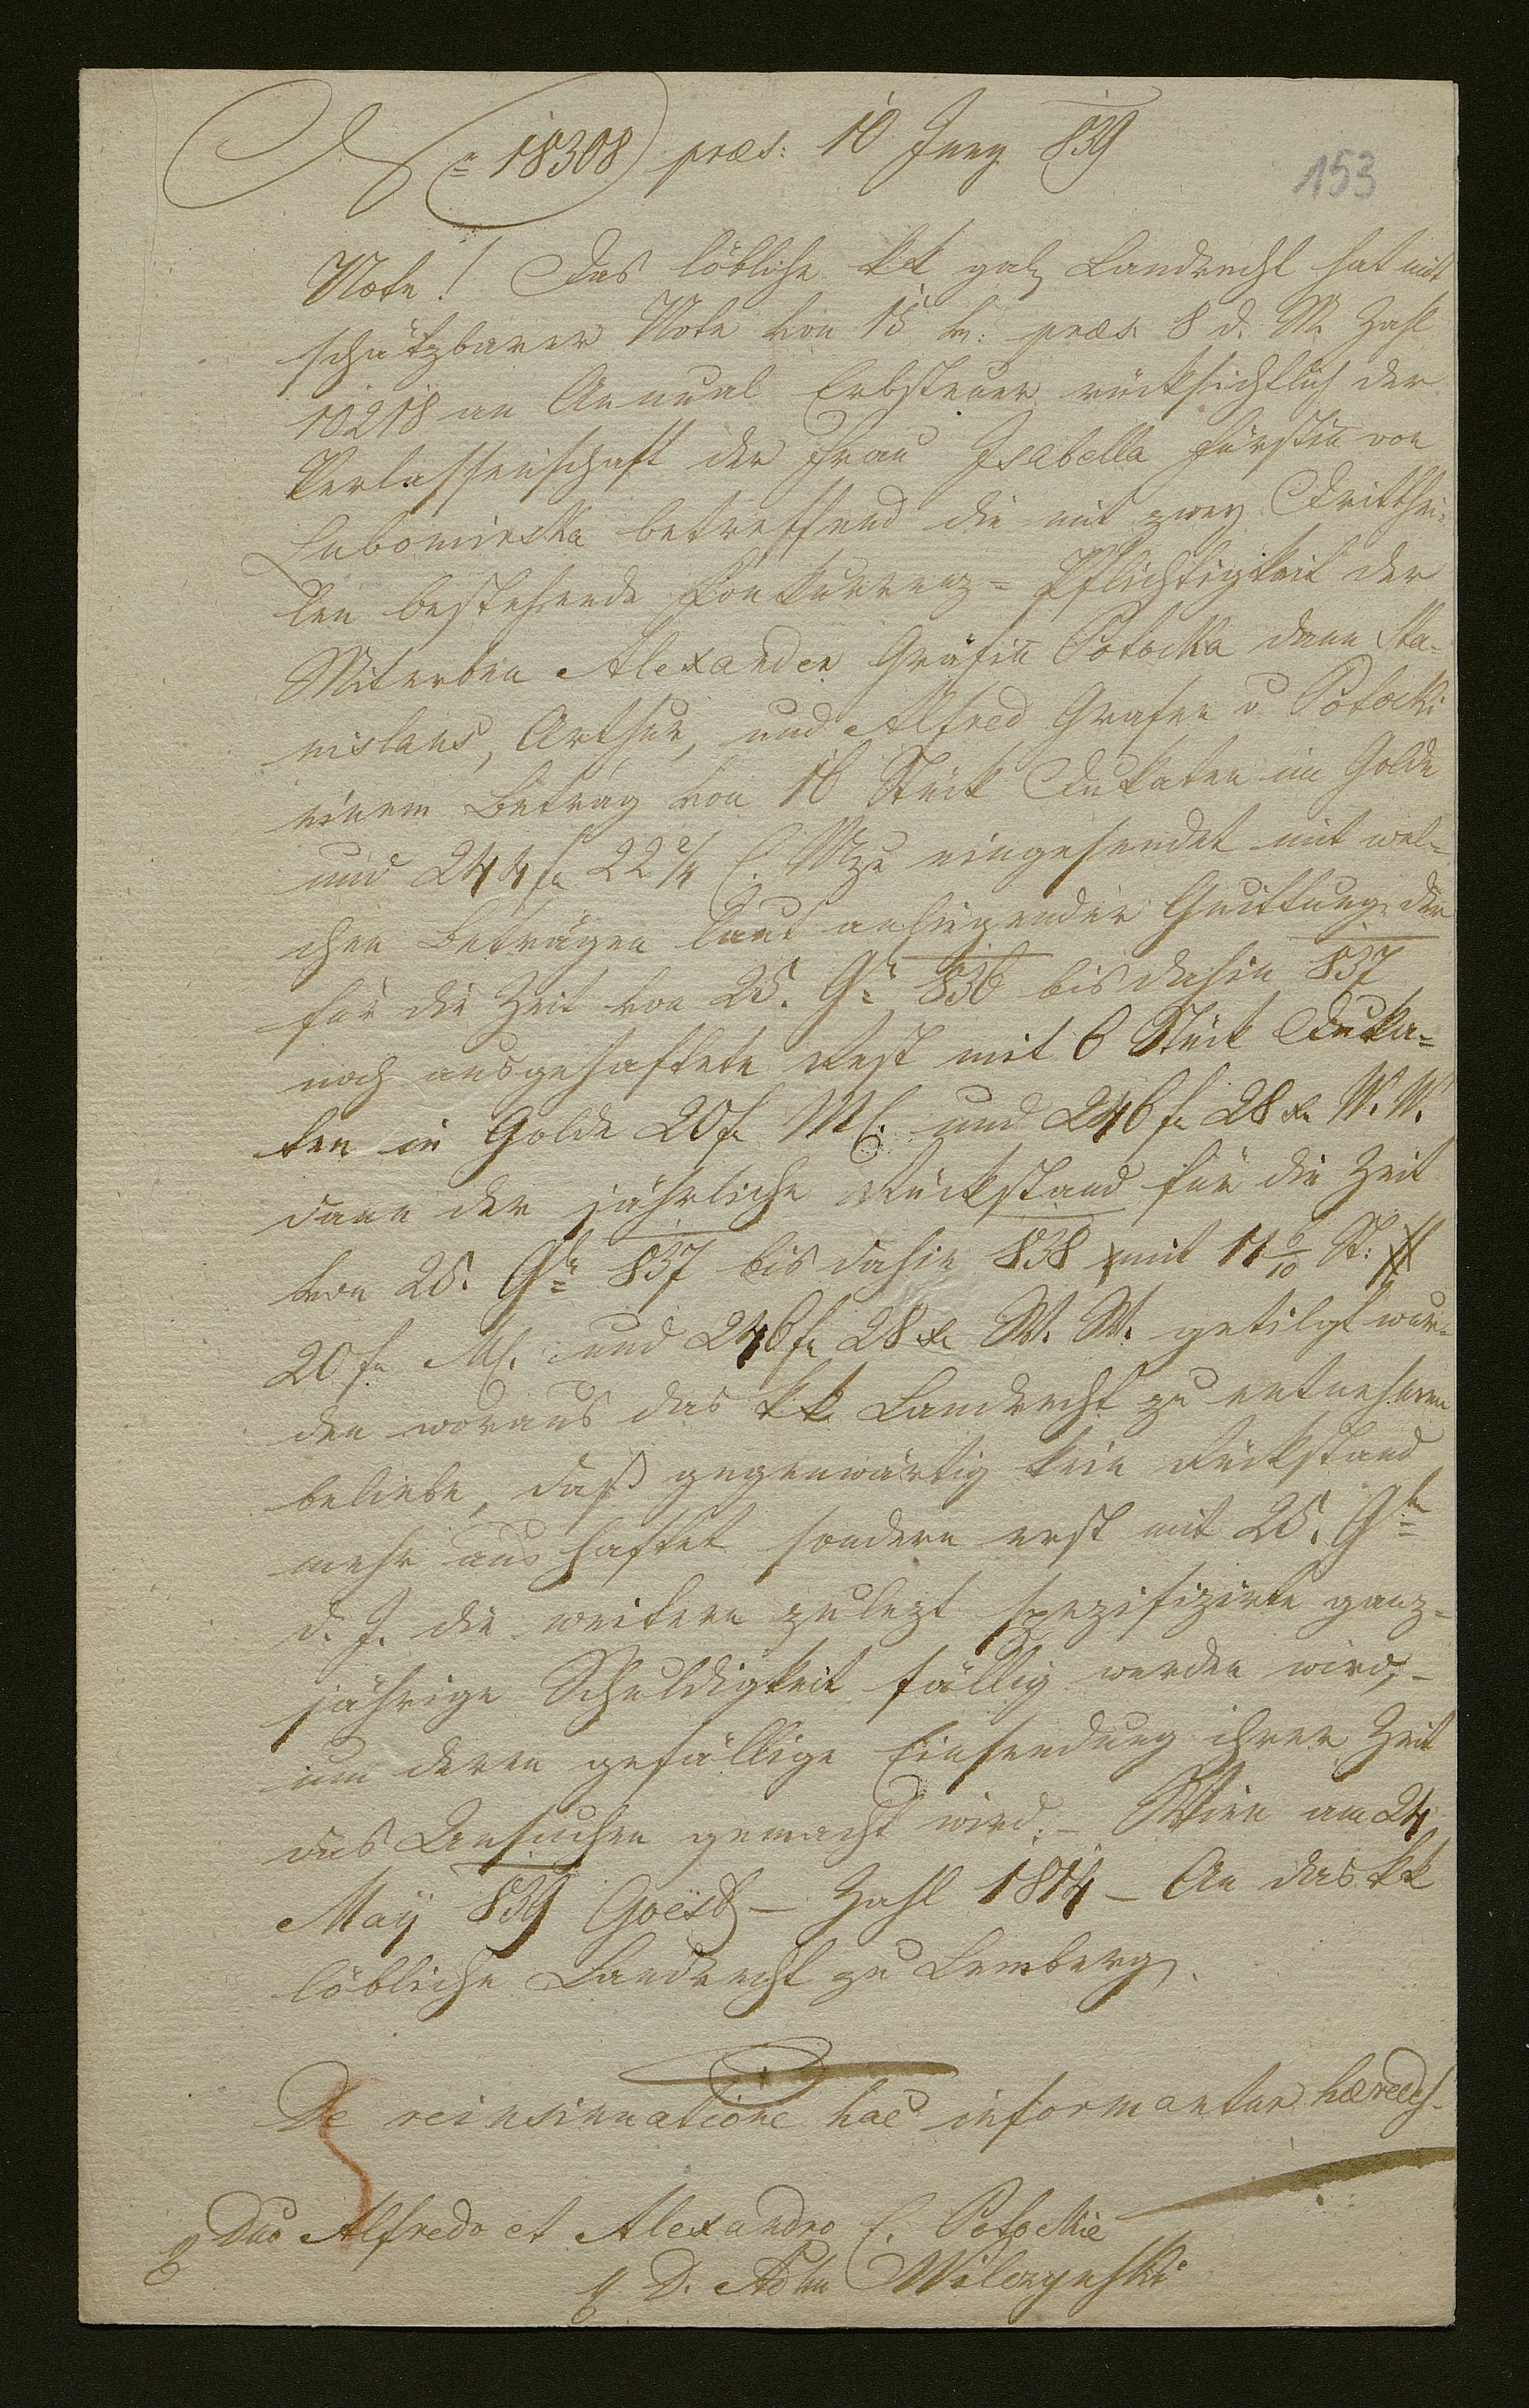 N= 18308 præs: 10 Juny 839
153
Note! Das löbliche kk galz Landrecht hat mit
schätzbarer Note von 15 v: præs. 8 d. M. Zahl
10218 an Annual Erbsteuer rücksichtlich der
Verlassenschaft der Frau Isabella Fürstin von
Lubomirska betreffend die mit zwey Dritthei=
len bestehende Konkurrenz=Pflichtigkeit der
Miterben Alexander Gräfin Potocka dann Sta=
nislaus, Arthur, und Alfred Grafen v Potocki
einem Betrag von 16 Stück Dukaten im Golde
und 244 f 22 2/4 C. Mze eingesendet mit wel=
chen Beträgen laut anliegender Quittung der
für die Zeit von 25. 9b 836 bis dahin 837
noch ausgehaftete Rest mit 6 Stück Duka=
ten in Golde 20 f MC. und 246 f 28 x W. W.
dann der jährliche Rückstand für die Zeit
von 25. 9b 837 bis dahin 838 mit 11 9/10 St. #
20 f MC. und 246 f 28 x W. W. getilgt wur=
den woraus das kk Landrecht zu entnehmen
beliebe, daß gegenwärtig kein Rückstand
mehr aus haftet sondern erst mit 25. 9b
d. J. die weitere zulezt spezifizirte ganz=
jährige Schuldigkeit fällig werden wird, –
um deren gefällige Einsendung ihrer Zeit
das Ansuchen gemacht wird. – Wien am 24
May 839 Goëss – Zahl 1814 – An das kk
löbliche Landrecht zu Lemberg.
De reinsinuatione hac informantur hæredes.
Duo Alfredo et Alexandro C. Potockie
D. Adm Wilczynski